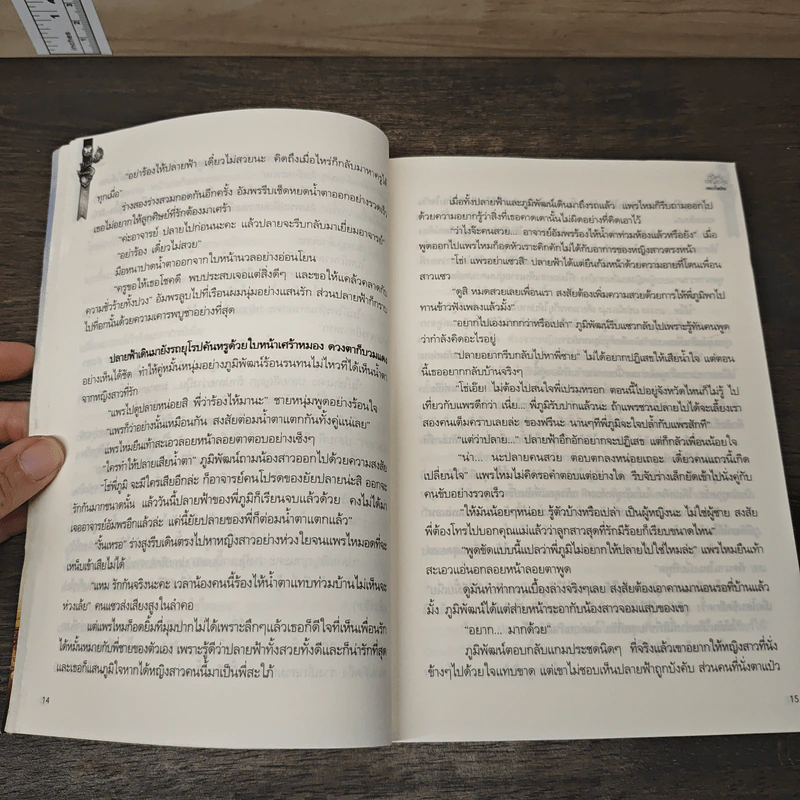 "อย่าร้องไห้ปลายฟ้า เดี๋ยวไม่สวยนะ คิดถึงเมื่อไหร่ก็กลับมาหาครูได้
ทุกเมื่อ"
ร่างสองร่างสวมกอดกันอีกครั้ง อัมพรรีบเช็ดหยดน้ำตาออกอย่างรวดเร็ว
เธอไม่อยากให้ลูกศิษย์ที่รักต้องมาเศร้า
"ค่ะอาจารย์ ปลายไปก่อนนะคะ แล้วปลายจะรีบกลับมาเยี่ยมอาจารย์"
"อย่าร้อง เดี๋ยวไม่สวย"
มือหนาปาดน้ำตาออกจากใบหน้านวลอย่างอ่อนโยน
"ครูขอให้เธอโชคดี พบประสบเจอแต่สิ่งดีๆ และขอให้แคล้วคลาดกับ
ความชั่วร้ายทั้งปวง" อัมพรลูบไปที่เรือนผมนุ่มอย่างแสนรัก ส่วนปลายฟ้าก็กราบ
ไปที่อกนั้นด้วยความเคารพบูชาอย่างที่สุด
ปลายฟ้าเดินมายังรถยุโรปคันหรูด้วยใบหน้าเศร้าหมอง ดวงตาก็บวมแดง
อย่างเห็นได้ชัด ทำให้คู่หมั้นหนุ่มอย่างภูมิพัฒน์ร้อนรนทนไม่ไหวที่ได้เห็นน้ำตา
จากหญิงสาวที่รัก
"แพรไปดูปลายหน่อยสิ พี่ว่าร้องไห้มานะ" ชายหนุ่มพูดอย่างร้อนใจ
"แพรก็ว่าอย่างนั้นเหมือนกัน สงสัยต่อมน้ำตาแตกกันทั้งคู่แน่เลย"
แพรไหมยืนเท้าสะเอวลอยหน้าลอยตาตอบอย่างเซ็งๆ
"ใครทำให้ปลายเสียน้ำตา" ภูมิพัฒน์ถามน้องสาวออกไปด้วยความสงสัย
"โธ่พี่ภูมิ จะมีใครเสียอีกล่ะ ก็อาจารย์คนโปรดของยัยปลายน่ะสิ ออกจะ
รักกันมากขนาดนั้น แล้ววันนี้ปลายฟ้าของพี่ภูมิก็เรียนจบแล้วด้วย คงไม่ได้มา
เจออาจารย์อัมพรอีกแล้วล่ะ แค่นี้ยัยปลายของพี่ก็ต่อมน้ำตาแตกแล้ว"
"งั้นเหรอ" ร่างสูงรีบเดินตรงไปหาหญิงสาวอย่างห่วงใยจนแพรไหมอดที่จะ
เหน็บเข้าเสียไม่ได้
"แหม รักกันจริงนะคะ เวลาน้องคนนี้ร้องไห้น้ำตาแทบท่วมบ้านไม่เห็นจะ
ห่วงเล้ย" คนแซวส่งเสียงสูงในลำคอ
แต่แพรไหมก็อดยิ้มที่มุมปากไม่ได้เพราะลึกๆแล้วเธอก็ดีใจที่เห็นเพื่อนรัก
ได้หมั้นหมายกับพี่ชายของตัวเอง เพราะรู้ดีว่าปลายฟ้าทั้งสวยทั้งดีและก็น่ารักที่สุด
และเธอก็แสนภูมิใจหากได้หญิงสาวคนนี้มาเป็นพี่สะใภ้
14
เมื่อทั้งปลายฟ้าและภูมิพัฒน์เดินมาถึงรถแล้ว แพรไหมก็รีบถามออกไป
ด้วยความอยากรู้ว่าสิ่งที่เธอคาดเดานั้นไม่ผิดอย่างที่คิดเอาไว้
"ว่าไงจ๊ะคนสวย... อาจารย์อัมพรร้องไห้น้ำตาท่วมห้องแล้วหรือยัง" เมื่อ
พูดออกไปแพรไหมก็อดหัวเราะคิกคักไม่ได้กับอาการของหญิงสาวตรงหน้า
"โธ่! แพรอย่าแซวสิ" ปลายฟ้าได้แต่ยืนก้มหน้าด้วยความอายที่โดนเพื่อน
สาวแซว
"ดูสิ หมดสวยเลยเพื่อนเรา สงสัยต้องเพิ่มความสวยด้วยการให้พี่ภูมิพาไป
ทานข้าวฟังเพลงแล้วมั้ง"
"อยากไปเองมากกว่าหรือเปล่า" ภูมิพัฒน์รีบแซวกลับไปเพราะรู้ทันคนพูด
ว่ากำลังคิดอะไรอยู่
"ปลายอยากรีบกลับไปหาพี่ชาย" ไม่ได้อยากปฏิเสธให้เสียน้ำใจ แต่ตอน
นี้เธออยากกลับบ้านจริงๆ
"โธ่เอ๊ย! ไม่ต้องไปสนใจพี่เปรมหรอก ตอนนี้ไปอยู่จังหวัดไหนก็ไม่รู้ ไป
เที่ยวกับแพรดีกว่า เนี่ย... พี่ภูมิรับปากแล้วนะ ถ้าแพรชวนปลายไปได้จะเลี้ยงเรา
สองคนเต็มคราบเลยล่ะ ของฟรีนะ นานๆที่พี่ภูมิจะใจปล้ำกับแพรสักที"
"แต่ว่าปลาย..." ปลายฟ้าอึกอักอยากจะปฏิเสธ แต่ก็กลัวเพื่อนน้อยใจ
"น่า... นะปลายคนสวย ตอบตกลงหน่อยเถอะ เดี๋ยวคนแถวนี้เกิด
เปลี่ยนใจ" แพรไหมไม่คิดรอคำตอบแต่อย่างใด รีบจับร่างเล็กยัดเข้าไปนั่งคู่กับ
คนขับอย่างรวดเร็ว
"ให้มันน้อยๆหน่อย รู้ตัวบ้างหรือเปล่า เป็นผู้หญิงนะ ไม่ใช่ผู้ชาย สงสัย
พี่ต้องโทรไปบอกคุณแม่แล้วว่าลูกสาวสุดที่รักมีร้อยก็เรียบขนาดไหน"
"พูดขัดแบบนี้แปลว่าพี่ภูมิไม่อยากให้ปลายไปใช่ไหมล่ะ" แพรไหมยืนเท้า
สะเอวแอ่นอกลอยหน้าลอยตาพูด
ดูมันทำท่ากวนเบื้องล่างจริงๆเลย สงสัยต้องเอาคานมานอนรอที่บ้านแล้ว
มั้ง ภูมิพัฒน์ได้แต่ส่ายหน้าระอากับน้องสาวจอมแสบของเขา
"อยาก... มากด้วย"
ภูมิพัฒน์ตอบกลับแกมประชดนิดๆ ที่จริงแล้วเขาอยากให้หญิงสาวที่นั่ง
ข้างๆไปด้วยใจแทบขาด แต่เขาไม่ชอบเห็นปลายฟ้าถูกบังคับ ส่วนคนที่นั่งตาแป๋ว
15